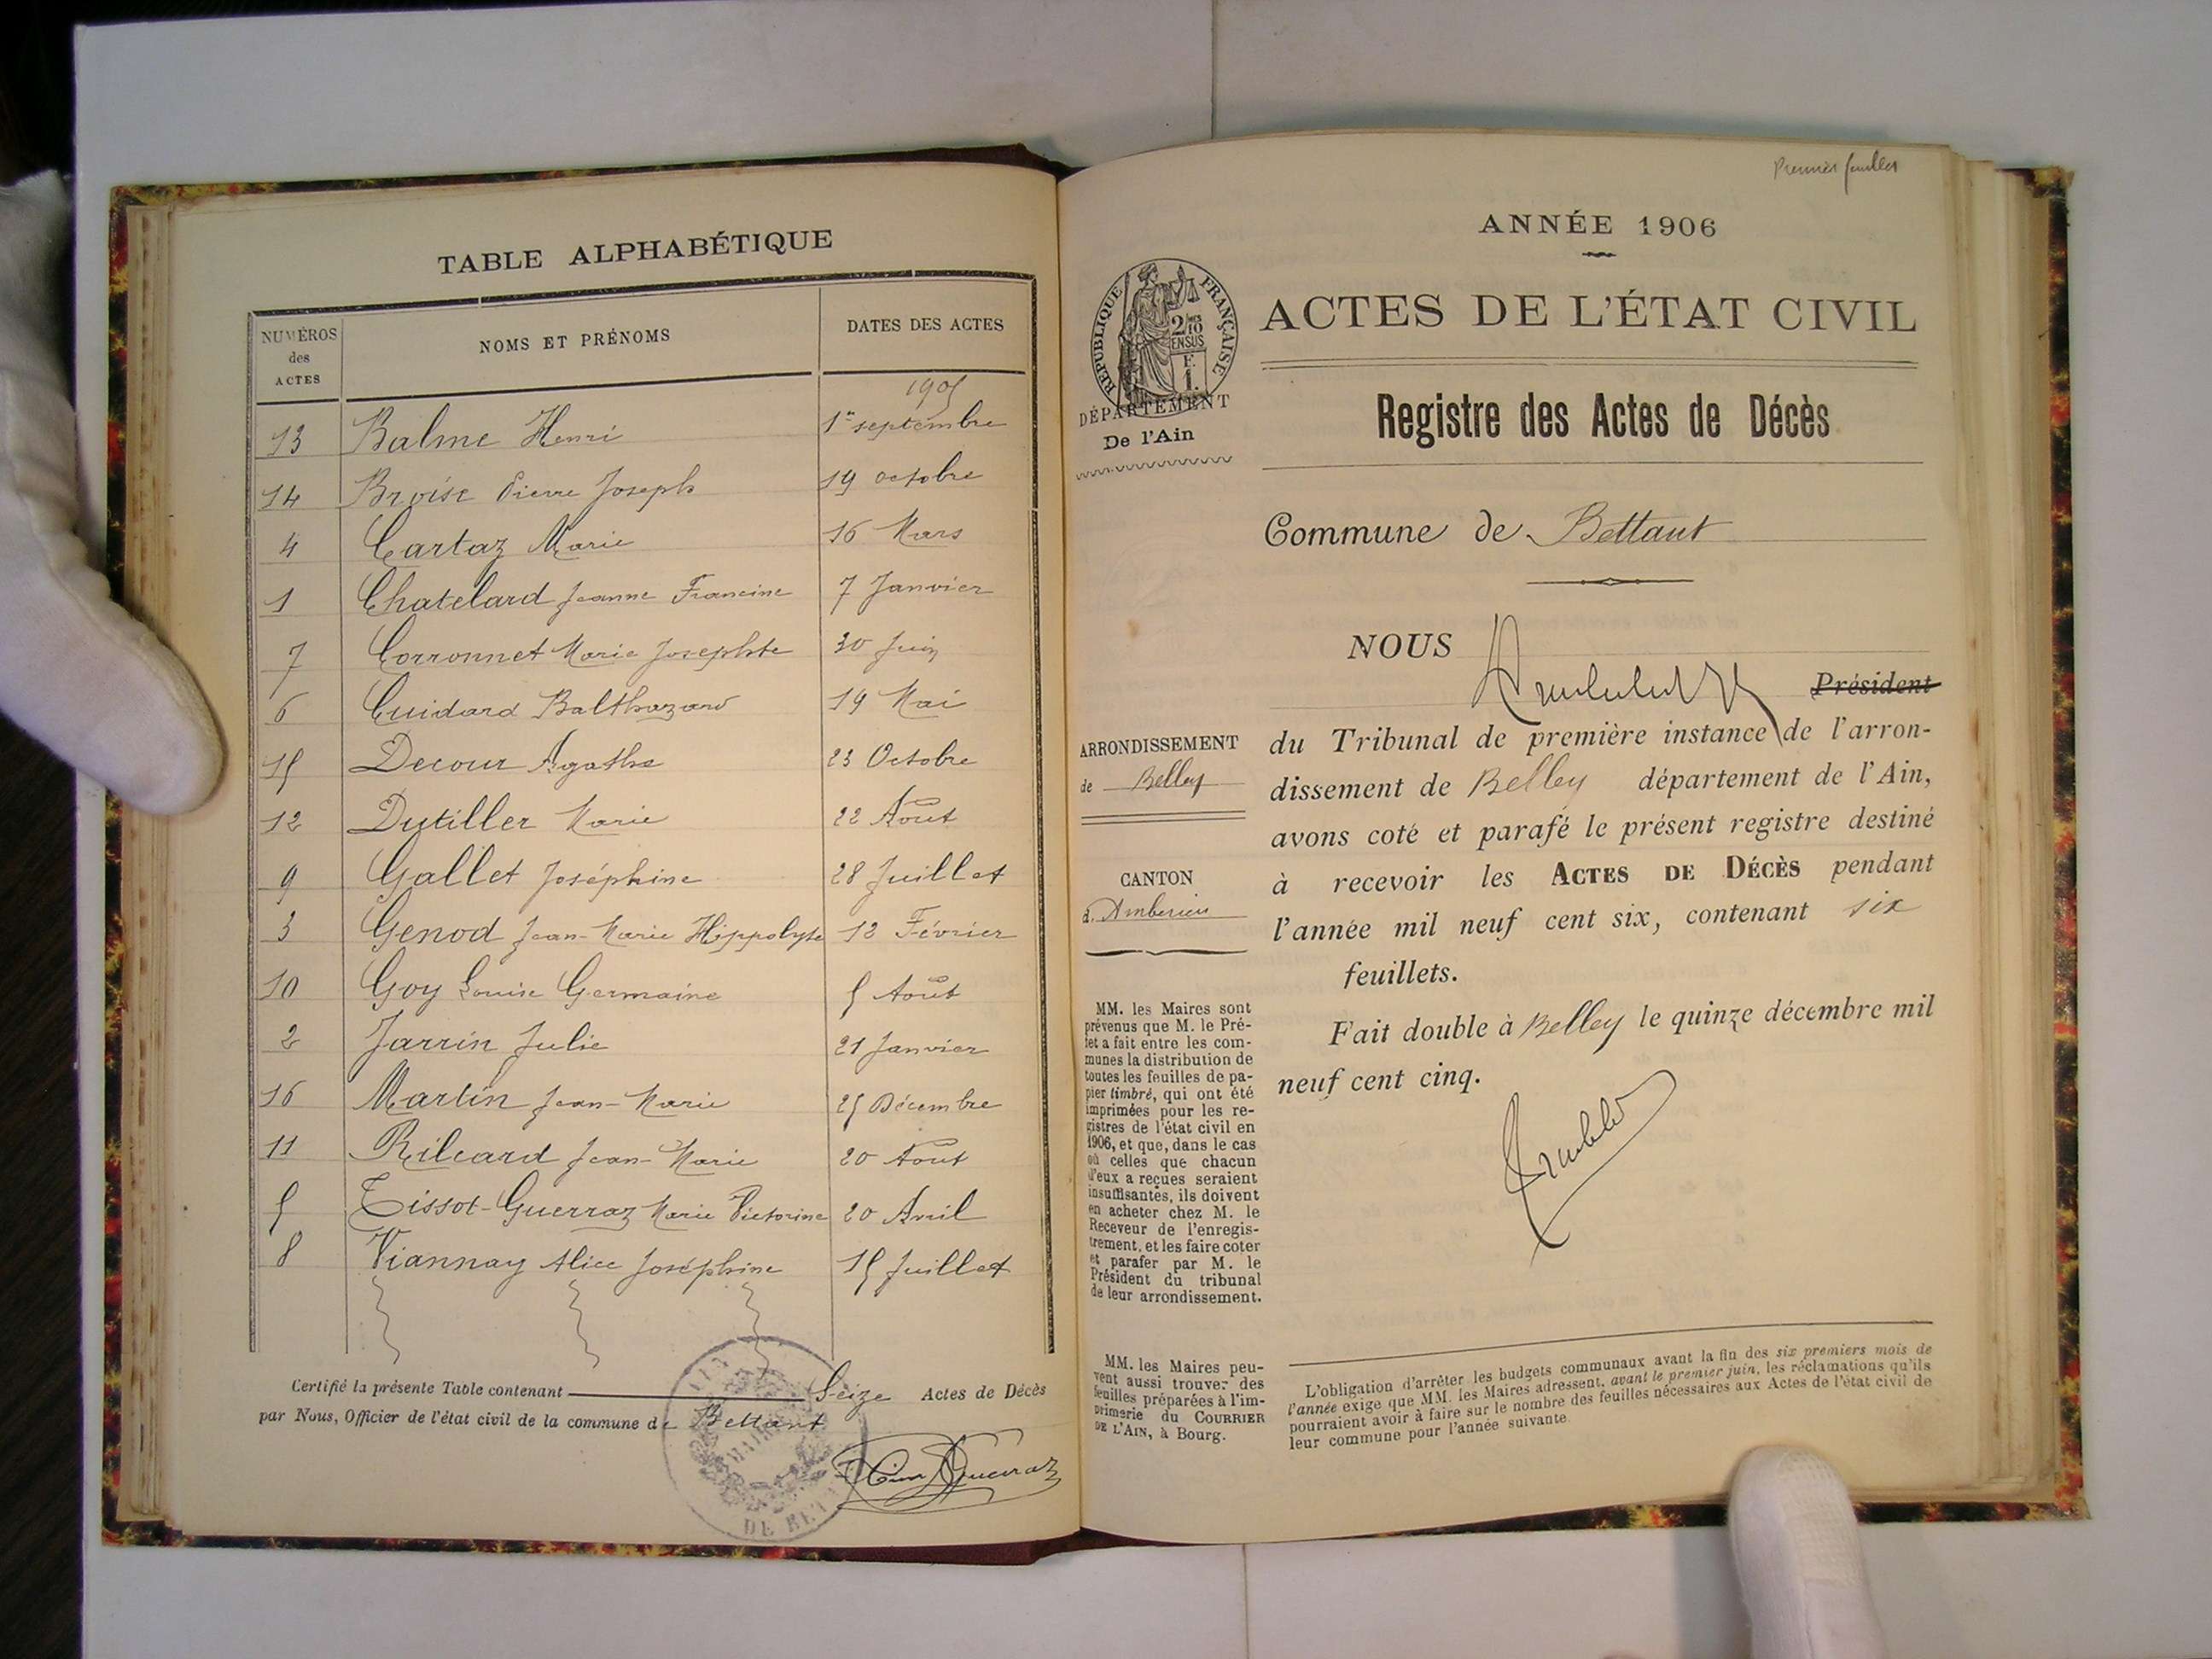 TABLE ALPHABÉTIQUE
NUMÉROS
des
ACTES
NOMS ET PRÉNOMS
DATES DES ACTES
1905
13 Balme Henri 1er septembre
14 Broise Pierre Joseph 19 octobre
4 Cartaz Marie 16 Mars
1 Chatelard Jeanne Francine 7 Janvier
7 Corronnet Marie Josephte 30 Juin
6 Cuidard Balthazard 19 Mai
15 Decour Agathe 23 Octobre
12 Dutiller Marie 22 Août
9 Gallet Joséphine 28 Juillet
3 Genod Jean-Marie Hippolyte 12 Février
10 Goy Louise Germaine 5 Août
2 Jarrin Julie 21 Janvier
16 Martin Jean-Marie 25 Décembre
11 Rileard Jean-Marie 20 Août
5 Tissot-Guerraz Marie Victorine 20 Avril
8 Viannay Alice Joséphine 15 Juillet
Certifié la présente Table contenant Seize Actes de Décès
par Nous, Officier de l'état civil de la commune de Bettant
Premier feuillet
ANNÉE 1906
RÉPUBLIQUE FRANÇAISE
2/10
EN SUS
F
1.
DÉPARTEMENT
De l'Ain
ACTES DE L'ÉTAT CIVIL
Registre des Actes de Décès
Commune de Bettant
NOUS
Président
du Tribunal de première instance de l'arron-
dissement de Belley département de l'Ain,
avons coté et parafé le présent registre destiné
à recevoir les ACTES DE DÉCÈS pendant
l'année mil neuf cent six, contenant six
feuillets.
Fait double à Belley le quinze décembre mil
neuf cent cinq.
ARRONDISSEMENT
de Belley
CANTON
d'Ambérieu
MM. les Maires sont
prévenus que M. le Pré-
fet a fait entre les com-
munes la distribution de
toutes les feuilles de pa-
pier timbré, qui ont été
imprimées pour les re-
gistres de l'état civil en
1906, et que, dans le cas
où celles que chacun
d'eux a reçues seraient
insuffisantes, ils doivent
en acheter chez M. le
Receveur de l'enregis-
trement, et les faire coter
et parafer par M. le
Président du tribunal
de leur arrondissement.
MM. les Maires peu-
vent aussi trouver des
feuilles préparées à l'im-
primerie du COURRIER
DE L'AIN, à Bourg.
L'obligation d'arrêter les budgets communaux avant la fin des six premiers mois de
l'année exige que MM. les Maires adressent, avant le premier juin, les réclamations qu'ils
pourraient avoir à faire sur le nombre des feuilles nécessaires aux Actes de l'état civil de
leur commune pour l'année suivante.